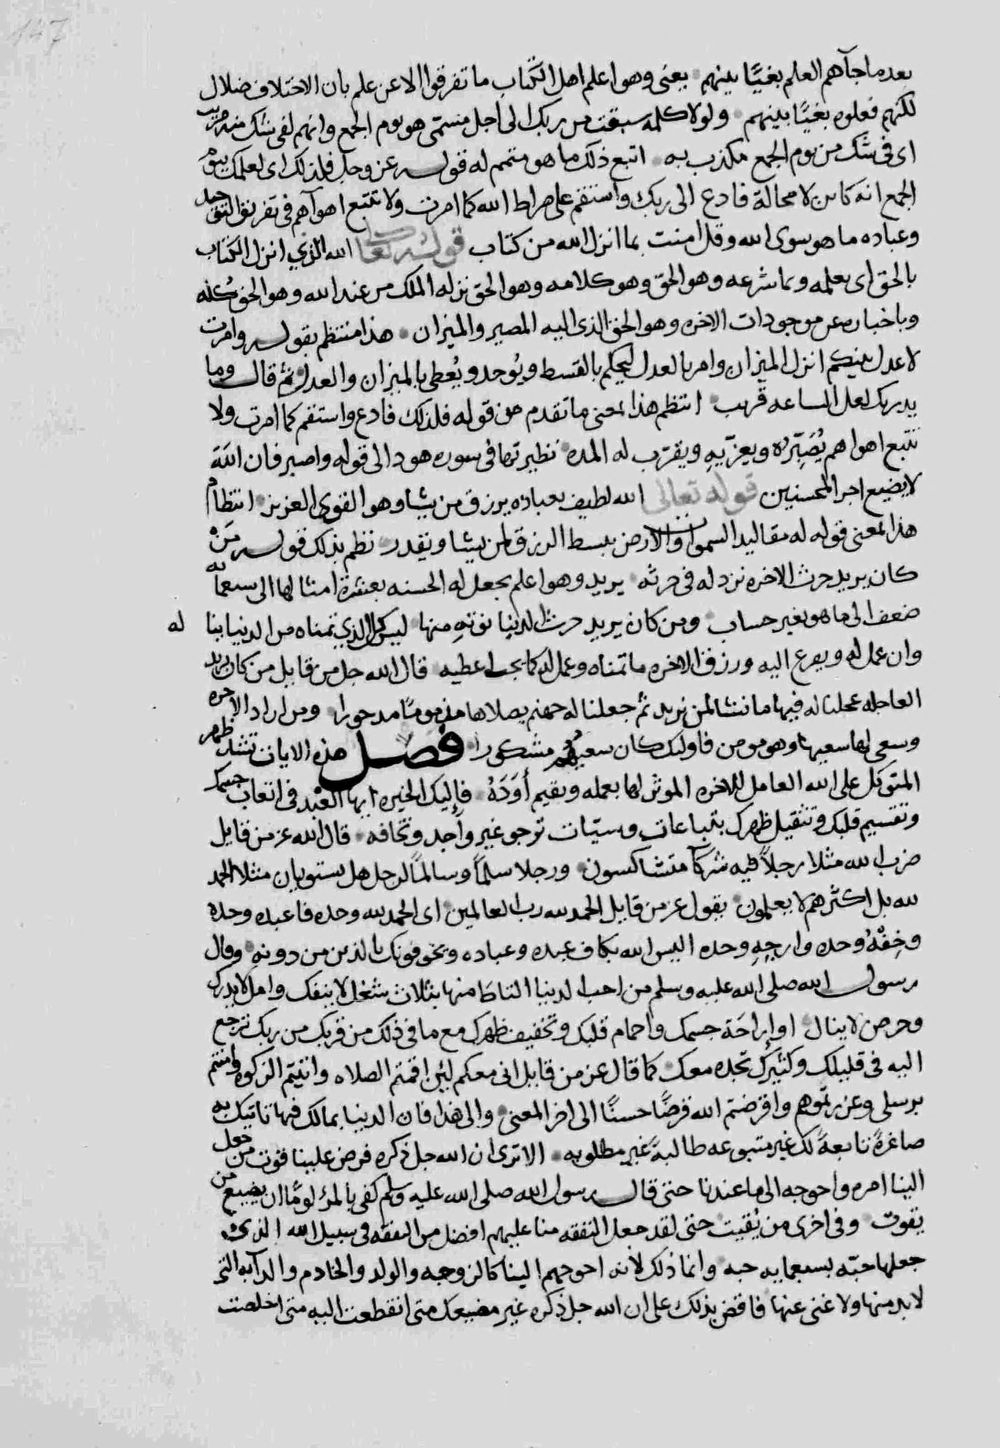 147
بعد ما جآهم العلم بغيًا بينهم يعنى وهو اعلم اهل الكتاب ما تفرقوا الا عن علم بان الاختلاف ضلال
لكنهم فعلوه بغيًا بينهم ولولا كلمة سبقت من ربك الى اجل مسمى هو يوم الجمع وانهم لفى شك منه مريب
اى فى شك من يوم الجمع مكذب به اتبع ذلك ما هو متمم له قوله عز وجل فلذلك اى لعلمك بيوم
الجمع انه كاين لا محالة فادع الى ربك واستقم على صراط الله كما امرت ولا تتبع اهوآهم فى تفريق
وعباده ما هو سوى الله وقل امنت بما انزل الله من كتاب قوله تعالى الله الذي انزل الكتاب
بالحق اى بعلمه وبما شرعه وهو الحق وهو كلامه وهو الحق نزله الملك من عند الله وهو الحق كله
وباخباره عن موجودات الاخره وهو الحق الذى اليه المصير والميزان هذا منتظم بقوله وامرت
لاعدل بينكم انزل الميزان وامر بالعدل ليحكم بالقسط ويُوخد ويُعطى بالميزان والعدل ثم قال وما
يدريك لعل الساعه قريب انتظم هذا بمعنى ما تقدم من قوله فلذلك فادع واستقم كما امرت ولا
تتبع اهواهم يُصَبِّرُه ويعزّيهِ ويقرّب له المده نظيرتها فى سوره هود الى قوله واصبر فان اللهَ
لا يضيع اجر المحسنين قوله تعالى الله لطيف بعباده يرزق من يشا وهو القوى العزيز انتظام
هذا لمعنى قوله له مقاليد السموات والارض يبسط الرزق لمن يشا ويقدر نظم بذلك قوله مَن
كان يريد حرث الاخره نزد له فى حرثه يريد وهو اعلم يجعل له الحسنه بعشرة امثالها الى سبعمايه
ضعف الى ما هو بغير حساب ومن كان يريد حرث الدنيا نوته منها ليس كل الذي تمناه من الدنيا ينا له
وان عمل له ويفرع اليه ورزق الاخره ما تمناه وعمل له كما يجب اعطيه قال الله جل من قايل من كان يريد
العاجله عجلنا له فيها ما نشا لمن نريد ثم جعلنا له جهنم يصلاها مذمومًا مدحورا ومن اراد الاخره
وسعى لها سعيها وهو مومن فاوليك كان سعيهم مشكورا فصل هذه الايات تشد ظهر
المتوكل على الله العامل للاخره الموثر لها بعمله ويقيم أَوَدَهُ فإليك الخيره ايها العبد فى اتعاب جسمك
وتقسيم قلبك وتثقيل ظهرك بتباعات وسيّات ترجى غير واحد وتخافه قال الله عز من قايل
ضرب الله مثلا رجلاً فيه شركآ متشاكسون ورجلا سلمًا وسالمًا لرجل هل يستويان مثلا الحمد
لله بل اكثرهم لا يعلمون يقول عز من قايل الحمد لله رب العالمين اى الحمد لله وحده فاعبده وحده
وخِفْهُ وحده وارجِهِ وحده اليس الله بكاف عبده وعباده ويخوفونك بالذين من دونه وقال
رسول الله صلى الله عليه وسلم من احب الدنيا التاط منها بثلاث شغل لا ينفك وامل لا يدرك
وحرص لا ينال او إراحَة جسمك وإجمام قلبك وتخفيف ظهرك مع ما فى ذلك من قربك من ربك ترجع
اليه فى قليلك وكثيرك تجده معك كما قال عز من قايل انى معكم ليئن اقمتم الصلاه واتيتم الزكوه وامنتم
برسلى وعزرتموهم واقرضتم الله قرضًا حسنًا الى اخر المعنى والى هذا فان الدنيا بمالك فيها تاتيك به
صاغرةً تابعةً لك غير متبوعه طالبةً غير مطلوبه الا ترى ان الله جل ذكره فرض علينا قوت من جعل
الينا امره واحوجه الى ما عندنا حتى قال رسول الله صلى الله عليه وسلم كفى بالمرء لومًا ان يضيع من
يقوت وفى اخرى من يُقيت حتى لقد جعل النفقه منا عليهم افضل من النفقه فى سبيل الله الذى
جعلها حبّه بسبعمايه حبه وانما ذلك لانه احوجهم الينا كالزوجه والولد والخادم والدابه التى
لا بد منها ولا غنى عنها فاقض بذلك على ان الله جل ذكره غير مضيعك متى انقطعت اليه متى اخلصت